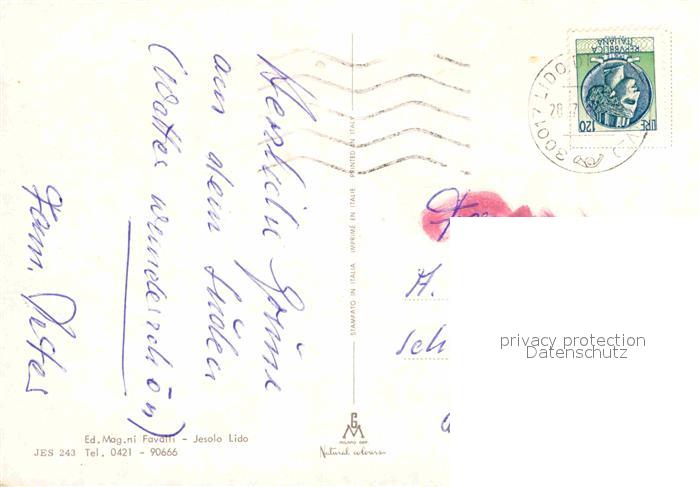 Herzliche Grüße
aus dem Süden
(Wetter wunderschön)
Fam.
STAMPATO IN ITALIA IMPRIMÉ EN ITALIE PRINTED IN ITALY
Ed. Mag.ni Favaffi - Jesolo Lido
JES 243 Tel. 0421 - 90666
GM
MILANO DEP.
Natural colours
REPVBBLICA
ITALIANA
LIRE 120
30017 LIDO DI
28
A.
Sch
privacy protection
Datenschutz